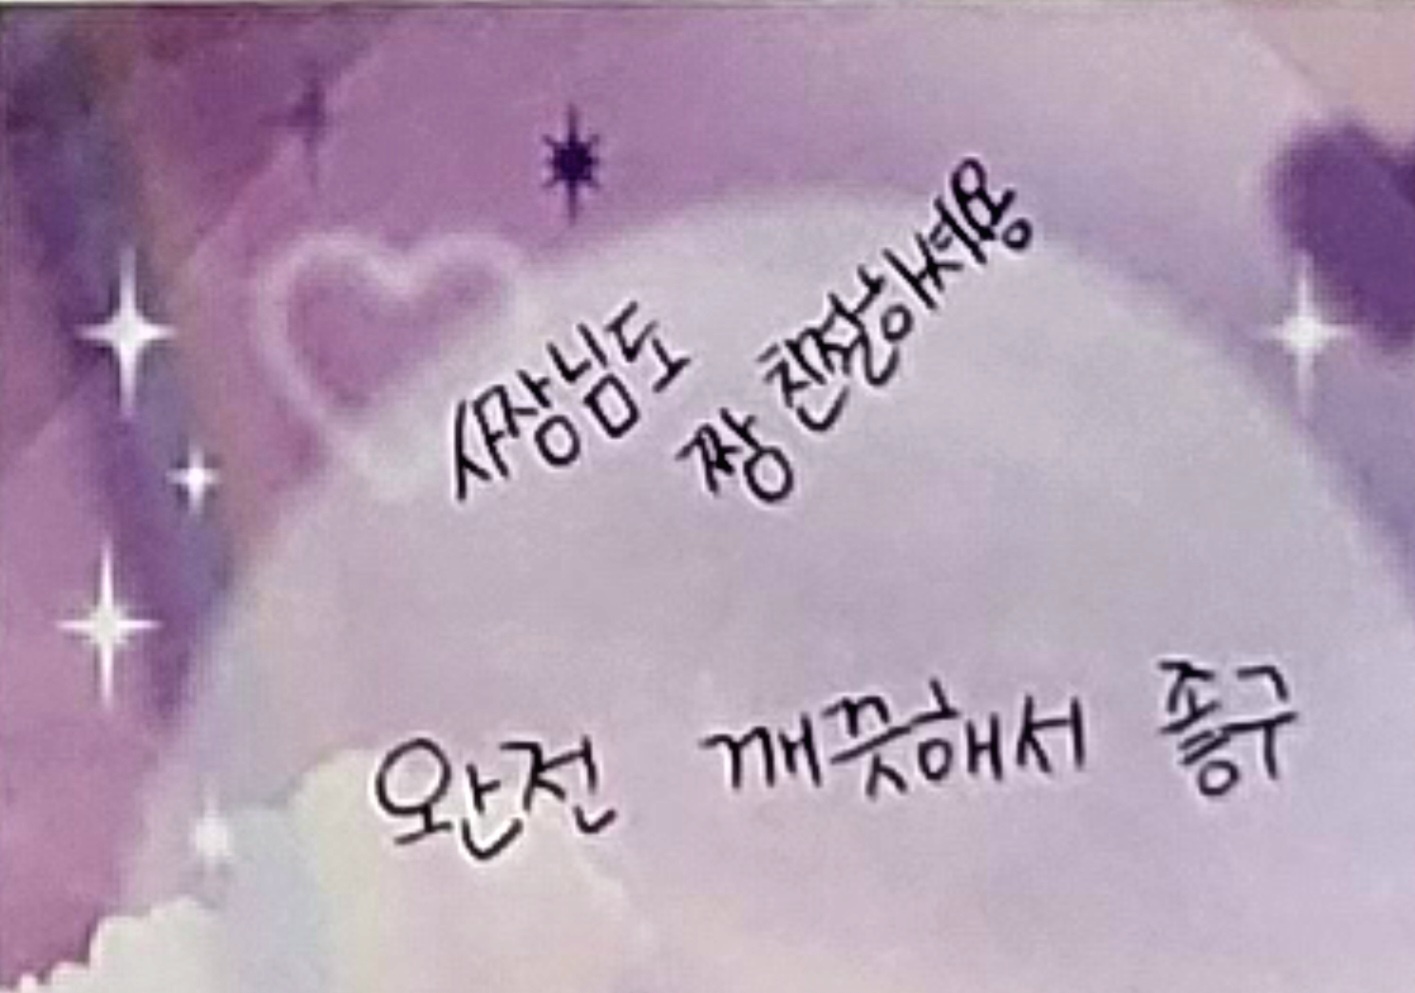 사장님도
짱 친절하셔용
완전 깨끗해서 좋구